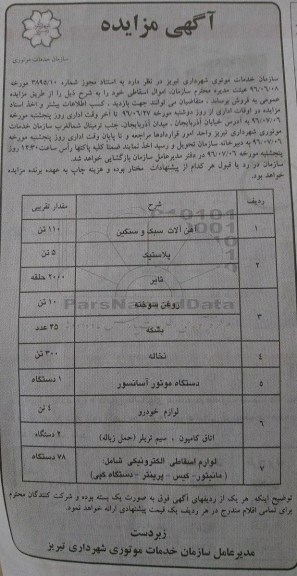 آگهی مزایده
سازمان خدمات موتوری
سازمان خدمات موتوری شهرداری تبریز در نظر دارد به استناد مجوز شماره ۳۸۹۵/۱۰ مورخه
۹۶/۰۶/۰۸ هیئت مدیره محترم سازمان، اموال اسقاطی خود را به شرح ذیل را از طریق مزایده
عمومی به فروش برساند ، متقاضیان می توانند جهت بازدید ، کسب اطلاعات بیشتر و اخذ اسناد
مزایده در اوقات اداری از روز دوشنبه مورخه ۹۶/۰۶/۲۷ تا آخر وقت اداری روز پنجشنبه مورخه
۹۶/۰۷/۰۶ به آدرس خیابان آذربایجان، میدان آذربایجان، جنب ترمینال شمالغرب سازمان خدمات
موتوری شهرداری تبریز واحد امور قراردادها مراجعه و تا پایان وقت اداری روز پنجشنبه مورخه
۹۶/۰۷/۰۶ به دبیرخانه سازمان تحویل و رسید اخذ نمایند ضمنا کلیه پاکتها رأس ساعت ۱۲:۳۰ روز
پنجشنبه مورخه ۹۶/۰۷/۰۶ در دفتر مدیرعامل سازمان بازگشایی خواهد شد.
سازمان در رد یا قبول هر کدام از پیشنهادات مختار بوده و هزینه چاپ به عهده برنده مزایده
خواهد بود.
ردیف شرح مقدار تقریبی
۱ آهن آلات سبک و سنگین ۱۱۰ تن
۲ پلاستیک ۵ تن
تایر ۲۰۰۰ حلقه
۳ روغن سوخته ۱۰ تن
بشکه ۳۵ عدد
۴ نخاله ۳۰۰ تن
۵ دستگاه موتور آسانسور ۱ دستگاه
۶ لوازم خودرو ۴ تن
اتاق کامیون ، سیم تریلر (حمل زباله) ۲ دستگاه
۷ لوازم اسقاطی الکترونیکی شامل: ۷۸ دستگاه
(مانیتور- کیس - پرینتر - دستگاه کپی)
توضیح اینکه، هر یک از ردیفهای آگهی فوق به صورت یک بسته بوده و شرکت کنندگان محترم
برای تمامی اقلام مندرج در هر ردیف یک قیمت پیشنهادی ارائه خواهد نمود.
زبردست
مدیرعامل سازمان خدمات موتوری شهرداری تبریز